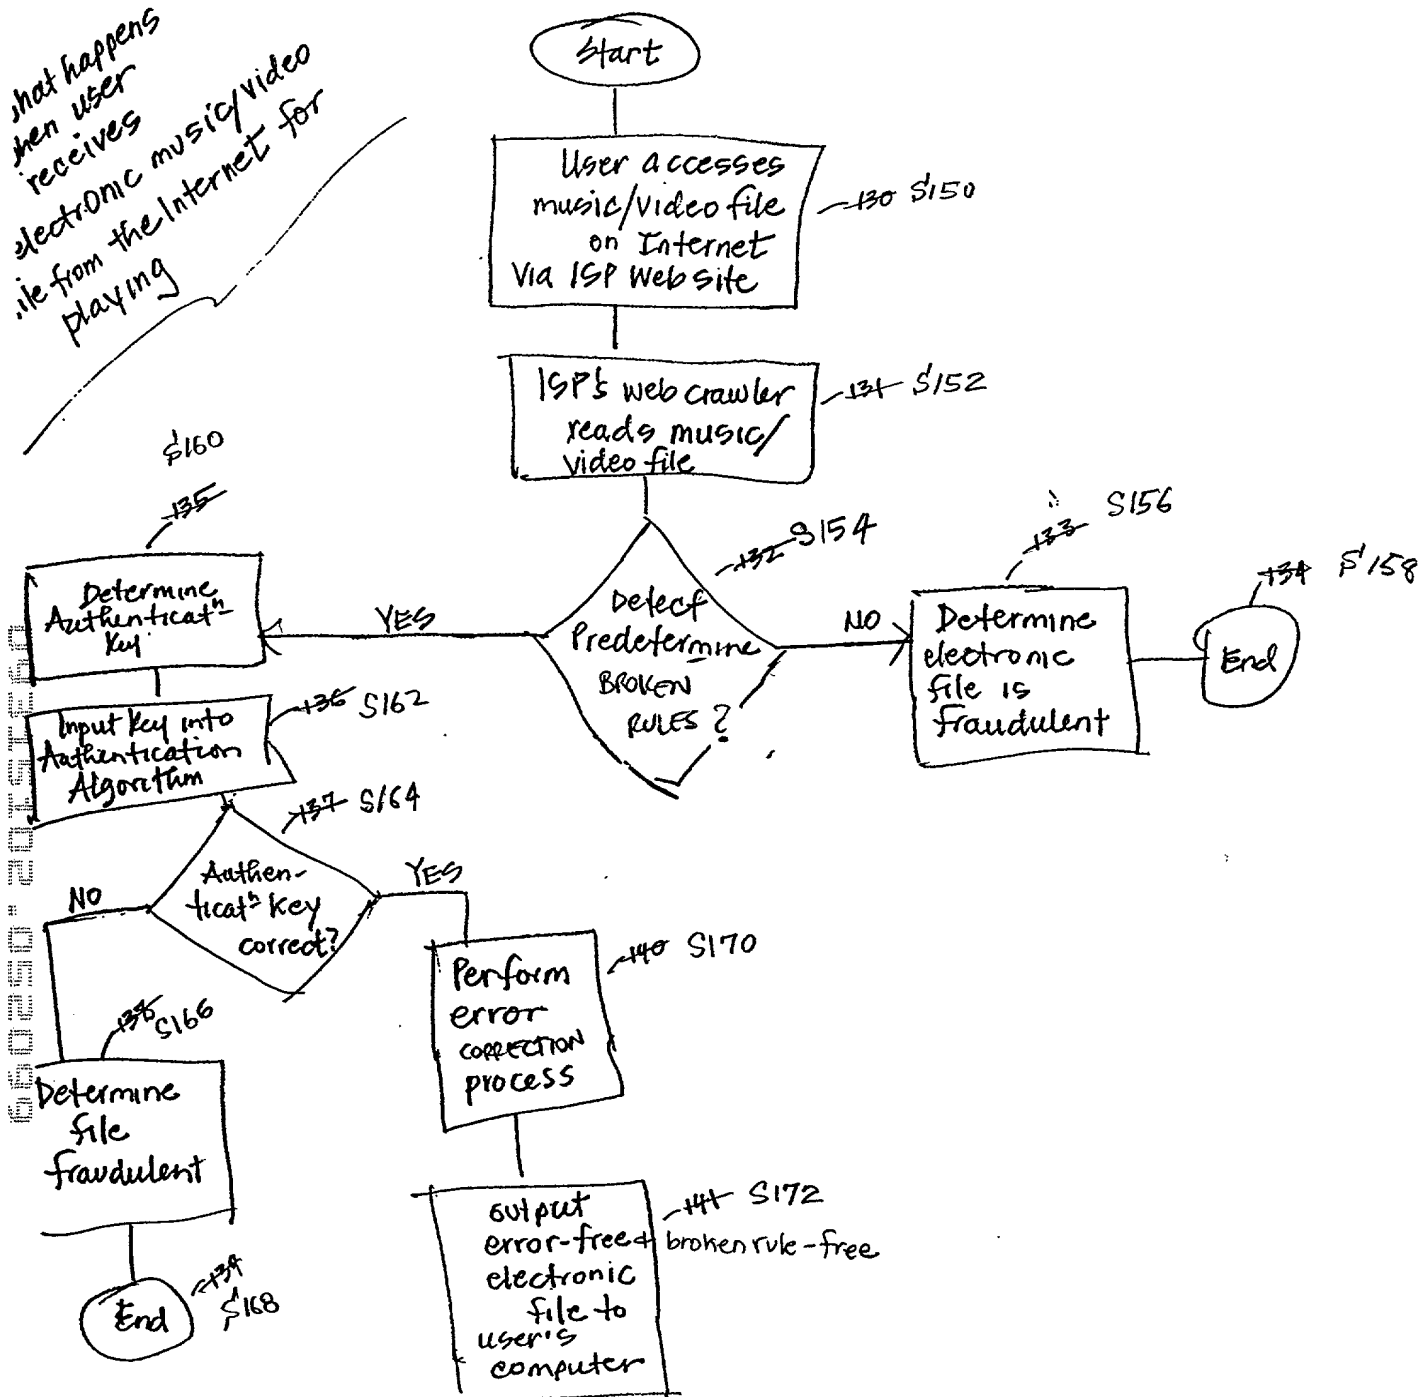 hat happens
hen user
receives
electronic music/video
ile from the Internet for
playing
Start
User accesses
music/video file
on Internet
Via ISP Website
130 S150
ISP's web crawler
reads music/
video file
131 S152
Detect
Predetermine
BROKEN
RULES?
132 S154
YES
NO
Determine
electronic
file is
fraudulent
133 S156
End
134 S158
S160
135
Determine
Authenticatn
Key
Input Key into
Authentication
Algorithm
136 S162
Authen-
ticatn Key
correct?
137 S164
NO
YES
Determine
file
fraudulent
138 S166
End
139
S168
Perform
error
CORRECTION
process
140 S170
output
error-free + broken rule-free
electronic
file to
user's
computer
141 S172